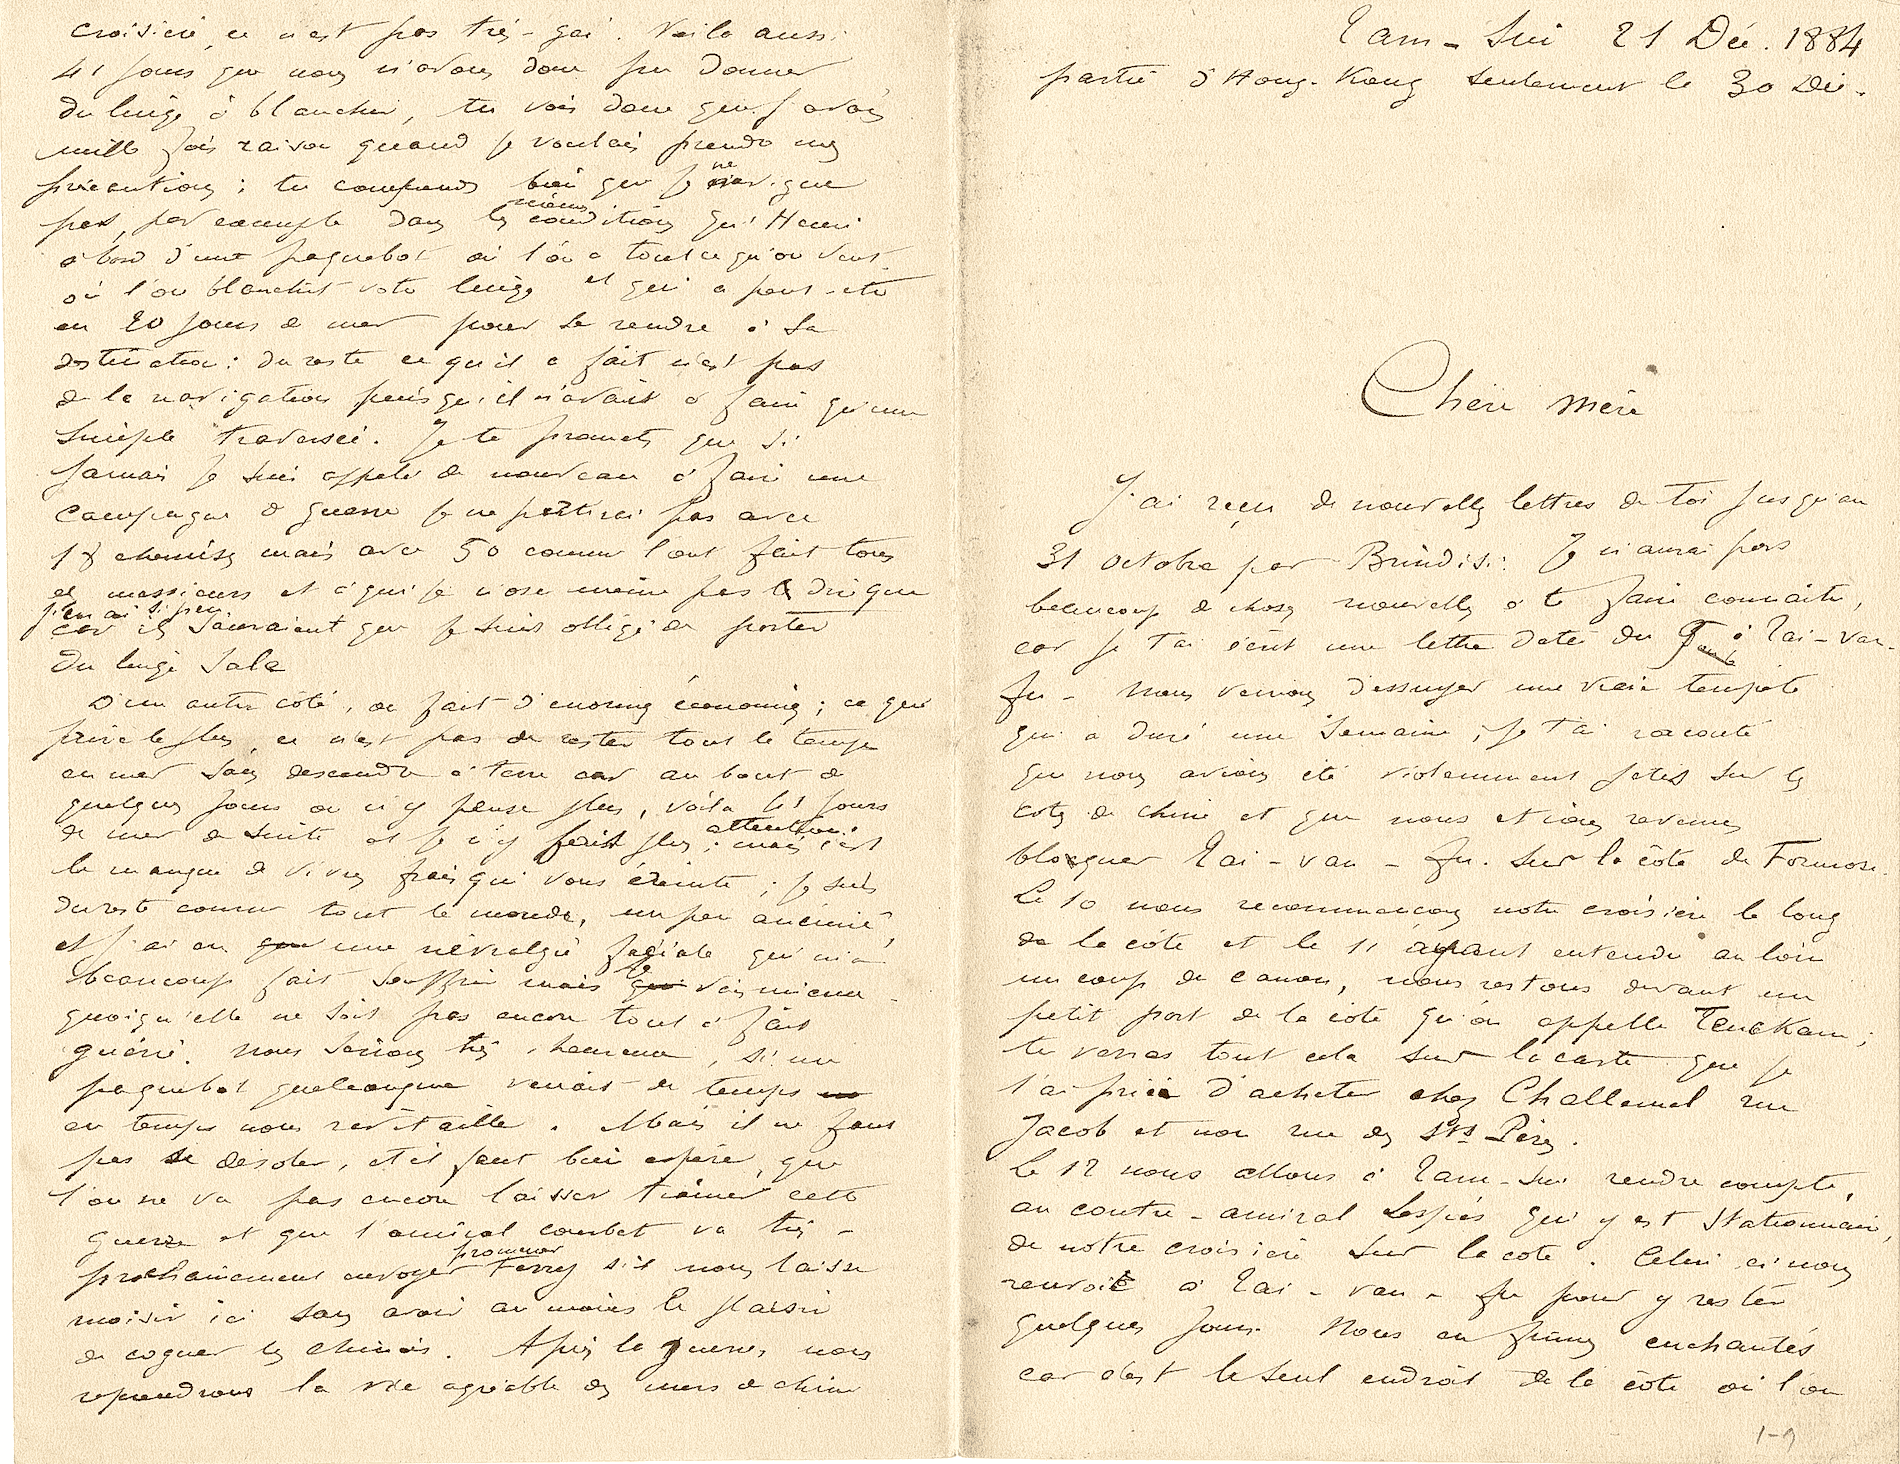 Tam-Sui 21 Déc. 1884
partie d'Hong-Kong seulement le 30 Déc.
Chère mère
J'ai reçu de nouvelles lettres de toi jusqu'au
31 octobre par Brindisi. Je n'aurai pas
beaucoup de choses nouvelles à te faire connaître,
car je t'ai écrit une lettre datée du 9 à Tai-van-
fu - Nous venions d'essuyer une vraie tempête
qui a duré une semaine ; je t'ai raconté
que nous avions été violemment jetés sur les
côtes de chine et que nous étions revenus
bloquer Tai-van-fu. sur la côte de Formose.
Le 10 nous recommençons notre croisière le long
de la côte et le 11 ayant entendu au loin
un coup de canon, nous restons devant un
petit port de la côte qu'on appelle Teukam ;
tu verras tout cela sur la carte que je
t'ai priée d'acheter chez Challamel rue
Jacob et non rue des Sts Pères.
Le 12 nous allons à Tam-sui rendre compte,
au contre-amiral Lespès qui y est stationnaire,
de notre croisière sur la côte. Celui ci nous
renvoie à Tai-van-fu pour y rester
quelques jours. Nous en fûmes enchantés
car c'est le seul endroit de la côte où l'on
1-9
croisière, ce n'est pas très-gai. Voilà aussi
41 jours que nous n'avons donc pu donner
du linge à blanchir, tu vois donc que j'avais
mille fois raison quand je voulais prendre mes
précautions ; tu comprends bien que je ne navigue
pas, par exemple dans les mêmes conditions qu'Henri
à bord d'un paquebot où l'on a tout ce qu'on veut
où l'on blanchit votre linge et qui a peut-être
eu 20 jours de mer pour se rendre à sa
destination : du reste ce qu'il a fait n'est pas
de la navigation puisqu'il n'avait à faire qu'une
simple traversée. Je te promets que si
jamais je suis appelé de nouveau à faire une
campagne de guerre je ne partirai pas avec
18 chemises mais avec 50 comme l'ont fait tous
ces messieurs et à qui je n'ose même pas dire que
j'en ai si peu
car ils sauraient que je suis obligé de porter
du linge sale
D'un autre côté, on fait d'énormes économies ; ce qui
prive le plus, ce n'est pas de rester tout le temps
en mer sans descendre à terre car au bout de
quelques jours on n'y pense plus, voilà 41 jours
de mer de suite et je n'y fais plus attention : mais c'est
le manque de vivres frais qui vous éreinte ; je suis
du reste comme tout le monde, un peu anémié,
et j'ai eu une névralgie faciale qui m'a
beaucoup fait souffrir mais je vais mieux
quoiqu'elle ne soit pas encore tout à fait
guérie. Nous serions très heureux, si un
paquebot quelconque venait de temps
en temps nous ravitailler. Mais il ne faut
pas se désoler, et il faut bien espérer, que
l'on ne va pas encore laisser traîner cette
guerre et que l'amiral courbet va très-
prochainement envoyer promener Ferry s'il nous laisse
moisir ici sans avoir au moins le plaisir
de cogner les chinois. Après la guerre, nous
reprendrons la vie agréable des mers de chine